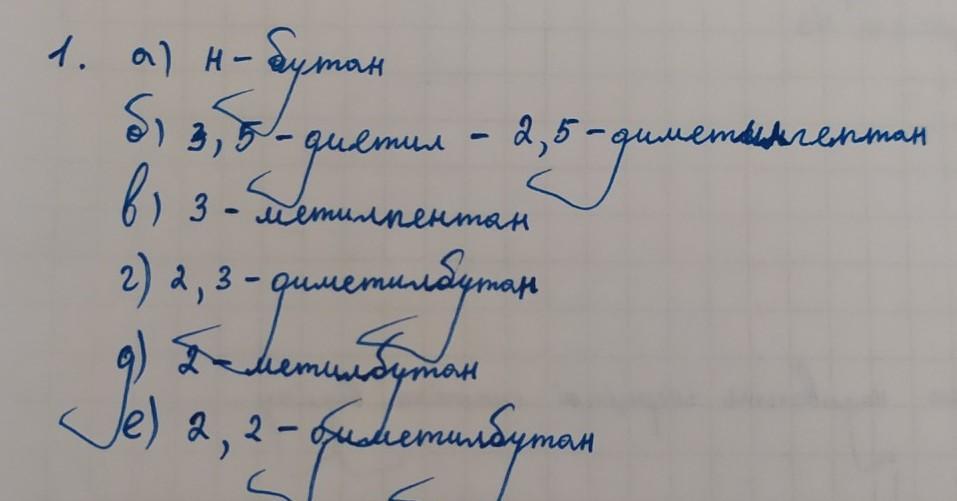 1. а) н-бутан
б) 3,5-диэтил-2,5-диметилгептан
в) 3-метилпентан
г) 2,3-диметилбутан
д) 2-метилбутан
е) 2,2-диметилбутан